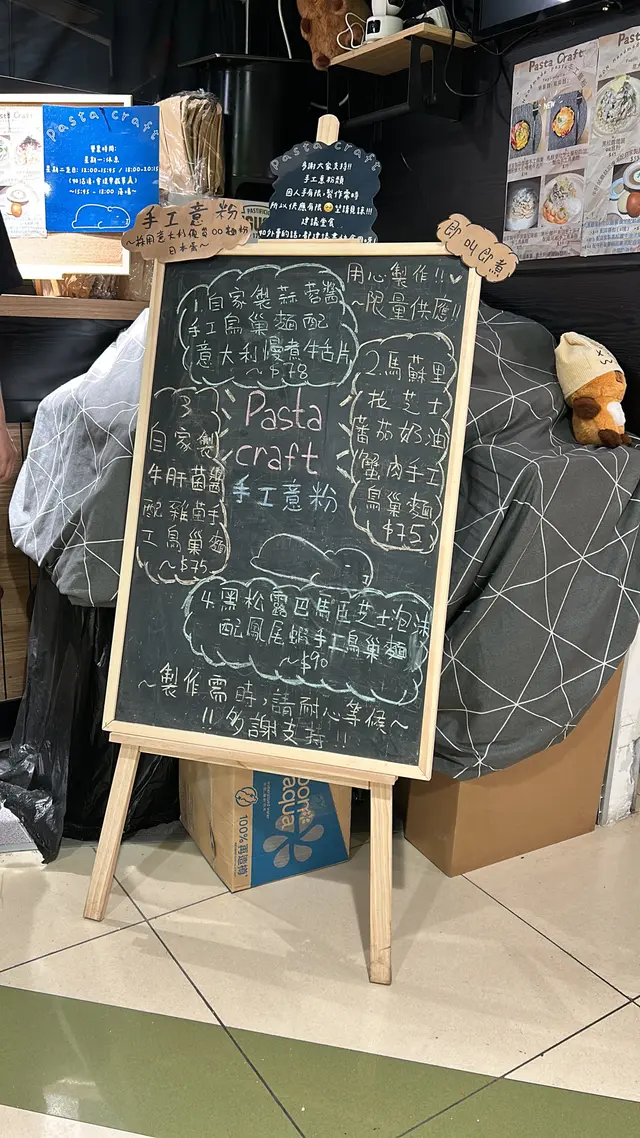 Pasta Craft
營業時間:
星期一:休息
Pasta Craft
多謝大家支持!!
手工意粉類
因人手有限,製作需時
所以供應有限🥺望請見諒!!!
建議堂食
手工意粉
~採用意大利優質00麵粉
日本蛋~
即叫即煮
用心製作!!
~限量供應!!
1.自家製蒜蓉醬
手工鳥巢麵配
意大利慢煮牛舌片
~$78
2.馬蘇里
拉芝士
蕃茄奶油
蟹肉手工
鳥巢麵
$75
3
自家製
牛肝菌醬
配雜菌手
工鳥巢麵
~$75
Pasta
craft
手工意粉
4.黑松露巴馬臣芝士泡沫
配鳳尾蝦手工鳥巢麵
~$90
~製作需時,請耐心等候~
!!多謝支持!!
Pasta Craft
100%再造樽